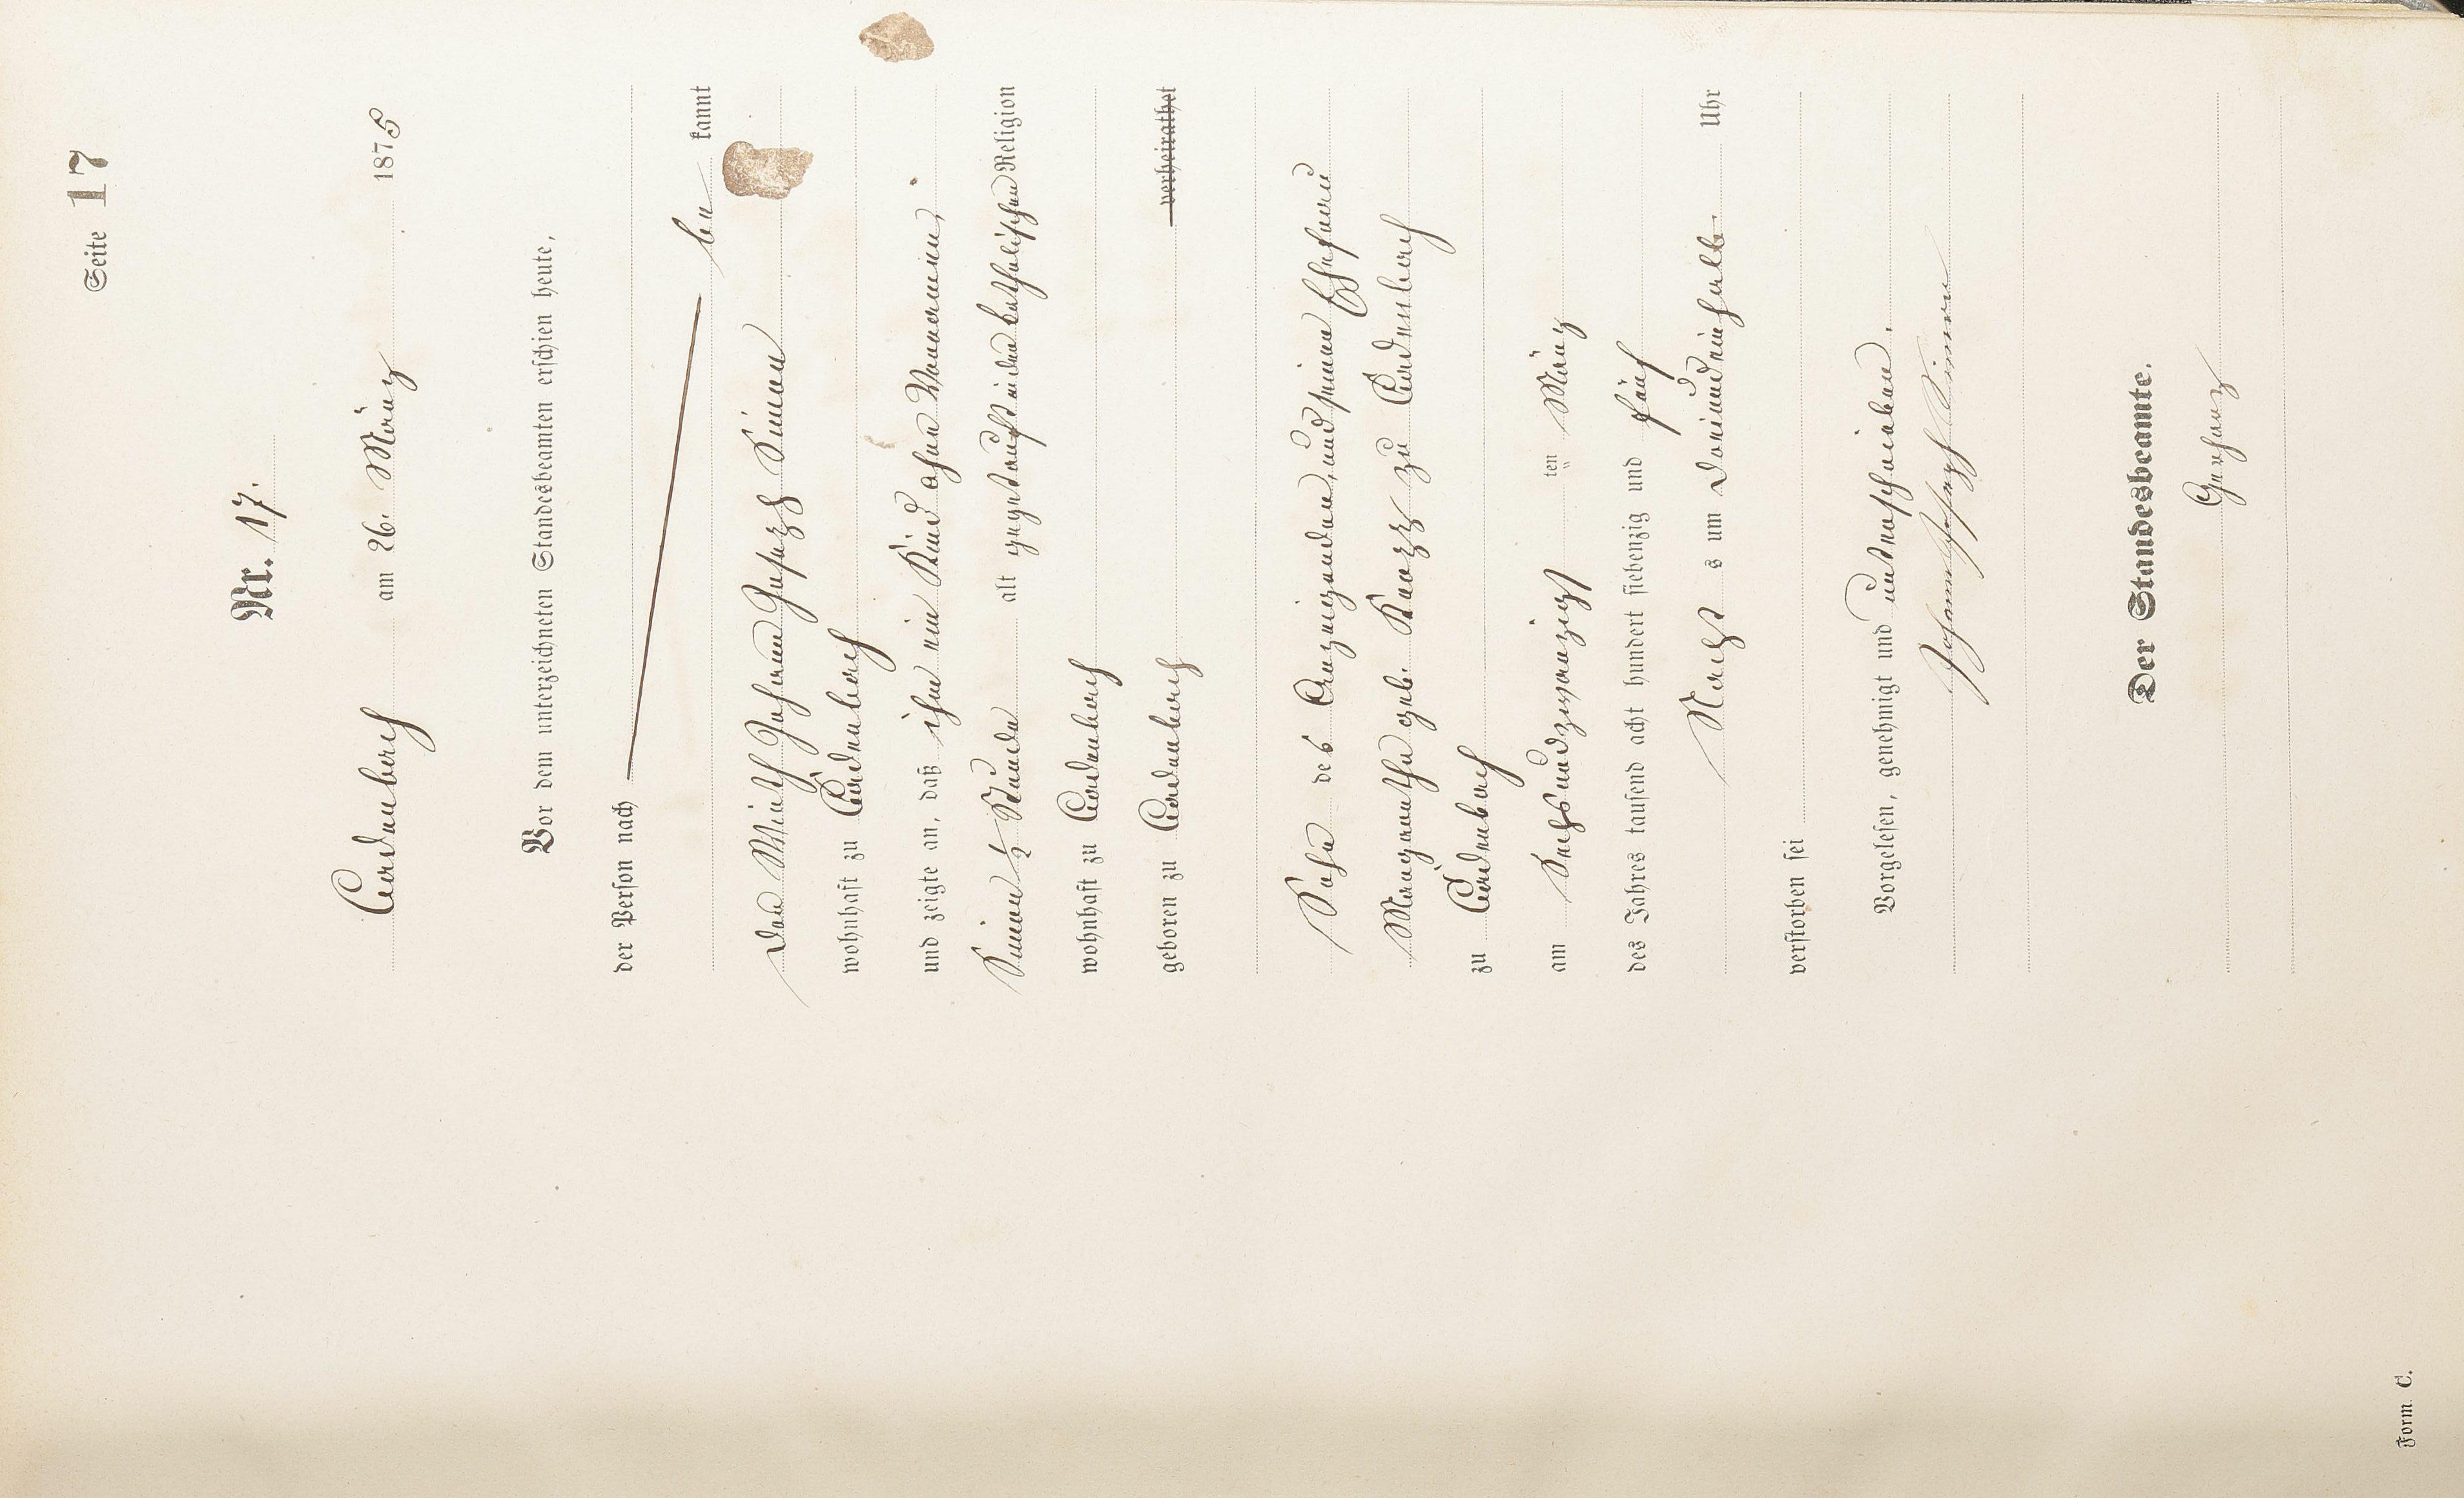 Seite 17
Nr. 17.
Cardenbach am 26. März 1875
Vor dem unterzeichneten Standesbeamten erschien heute,
der Person nach
be kannt
der Wirth Johann Joseph Simon
wohnhaft zu Cardenbach
und zeigte an, daß ihm ein Kind ohne Vornamen,
Simon ½ Stunde alt katholischen Religion
wohnhaft zu Cardenbach
geboren zu Cardenbach verheirathet
Sohn des Anzeigenden, und seiner Ehefrau
Margaretha geb. zu Cardenbach
zu Cardenbach
am Sechsundzwanzigst ten März
des Jahres tausend acht hundert siebenzig und fünf
Nachts um dreiundeinhalb Uhr
verstorben sei
Vorgelesen, genehmigt und unterschrieben.
Johann Joseph Simon
Der Standesbeamte.
Form. C.